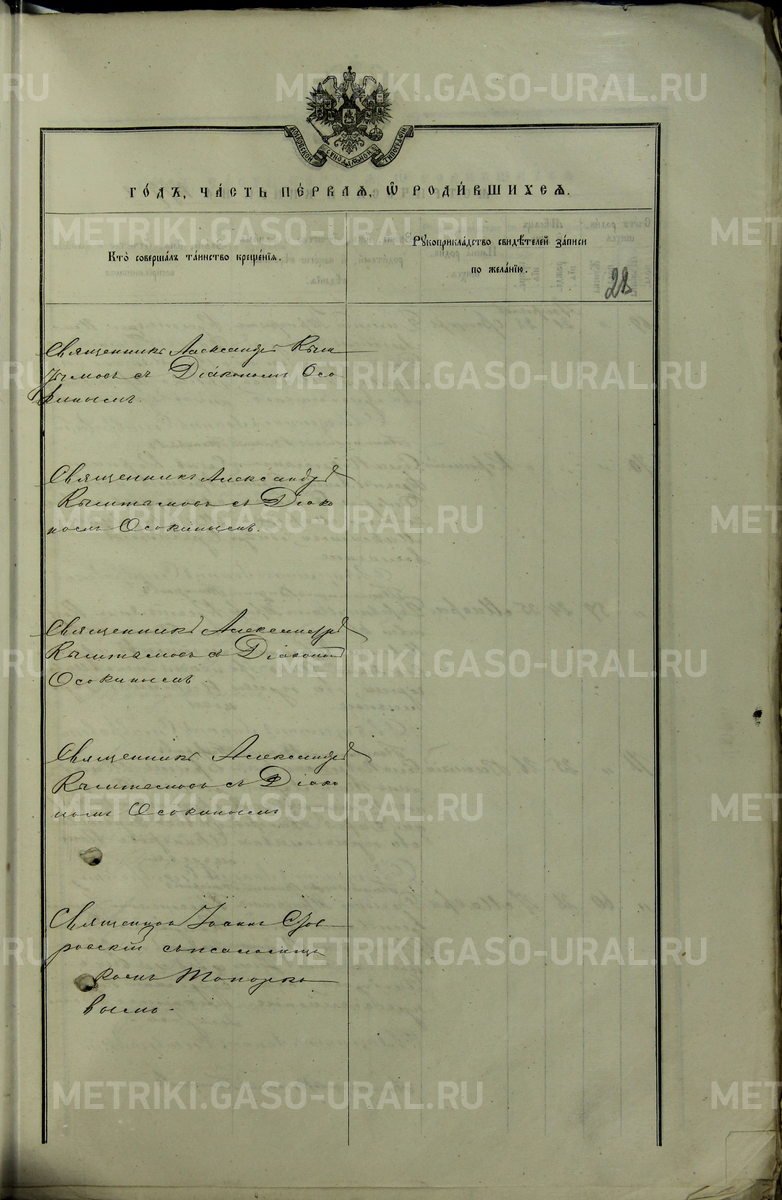 METRIKI.GASO-URAL.RU
ГО́ДЪ, ЧА́СТЬ ПЕ́РВАЯ, Ѿ РОДИ́ВШИХСЯ.
Кто̀ соверша́лъ та́инство креще́нія.
Рꙋкоприкла́дство свидѣ́телей за́писи
по жела́нію.
28
Священникъ Александръ Кыш
тымовъ съ Діакономъ Осо
кинымъ.
Священникъ Александръ
Кыштымовъ съ Діако
номъ Осокинымъ.
Священникъ Александръ
Кыштымовъ съ Діакономъ
Осокинымъ.
Священникъ Александръ
Кыштымовъ съ Діако
номъ Осокинымъ
Священникъ Іоаннъ
съ псаломщи
комъ Топорко
вымъ.